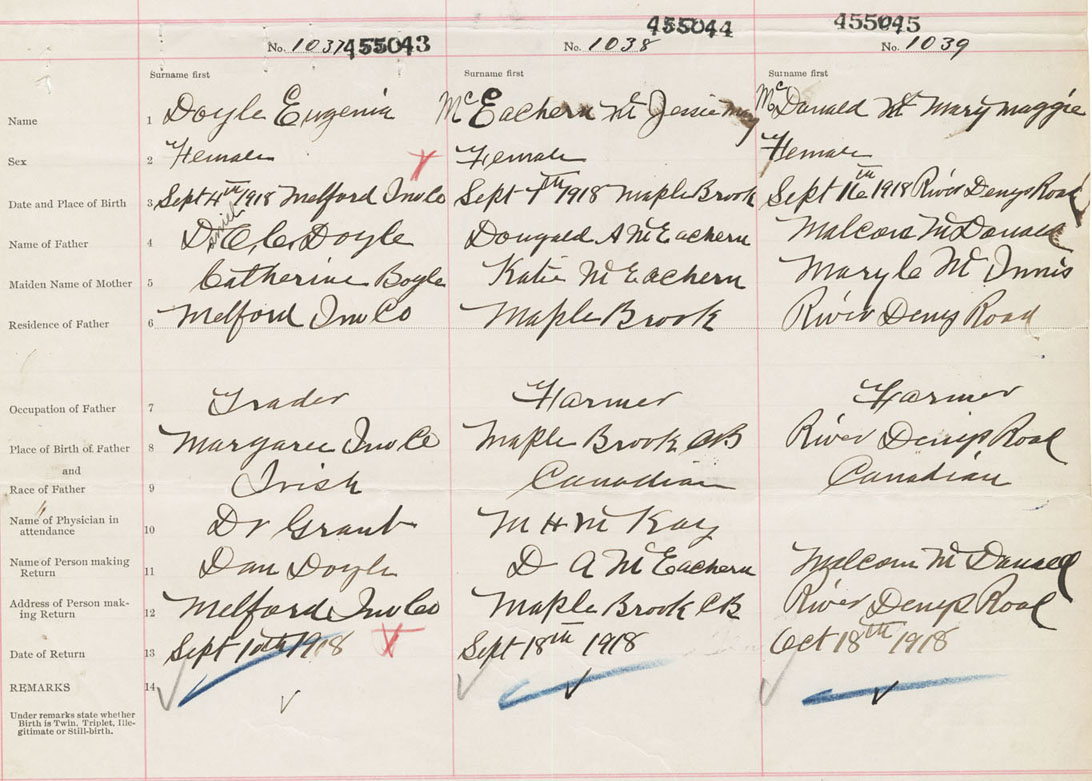 455043 455044 455045
No. 1037 No. 1038 No. 1039
Surname first Surname first Surname first
Name 1 Doyle Eugenia McEachern Mc Jessie May McDonald Mc Mary Maggie
Sex 2 Female Female Female
Date and Place of Birth 3 Sept 4th 1918 Melford Inv Co Sept 7th 1918 Maple Brook Sept 16th 1918 River Denys Road
Name of Father 4 Doyle Dougald A McEachern Malcom McDonald
Maiden Name of Mother 5 Catherine Boyle Katie McEachern Mary C McInnis
Residence of Father 6 Melford Inv Co Maple Brook River Denys Road
Occupation of Father 7 Trader Farmer Farmer
Place of Birth of Father 8 Margaree Inv Co Maple Brook CB River Denys Road
and
Race of Father 9 Irish Canadian Canadian
Name of Physician in
attendance 10 Dr Grant M H McKay
Name of Person making
Return 11 Dan Doyle D A McEachern Malcom McDonald
Address of Person mak-
ing Return 12 Melford Inv Co Maple Brook CB River Denys Road
Date of Return 13 Sept 10th 1918 Sept 18th 1918 Oct 18th 1918
REMARKS 14
Under remarks state whether
Birth is Twin, Triplet, Ille-
gitimate or Still-birth.